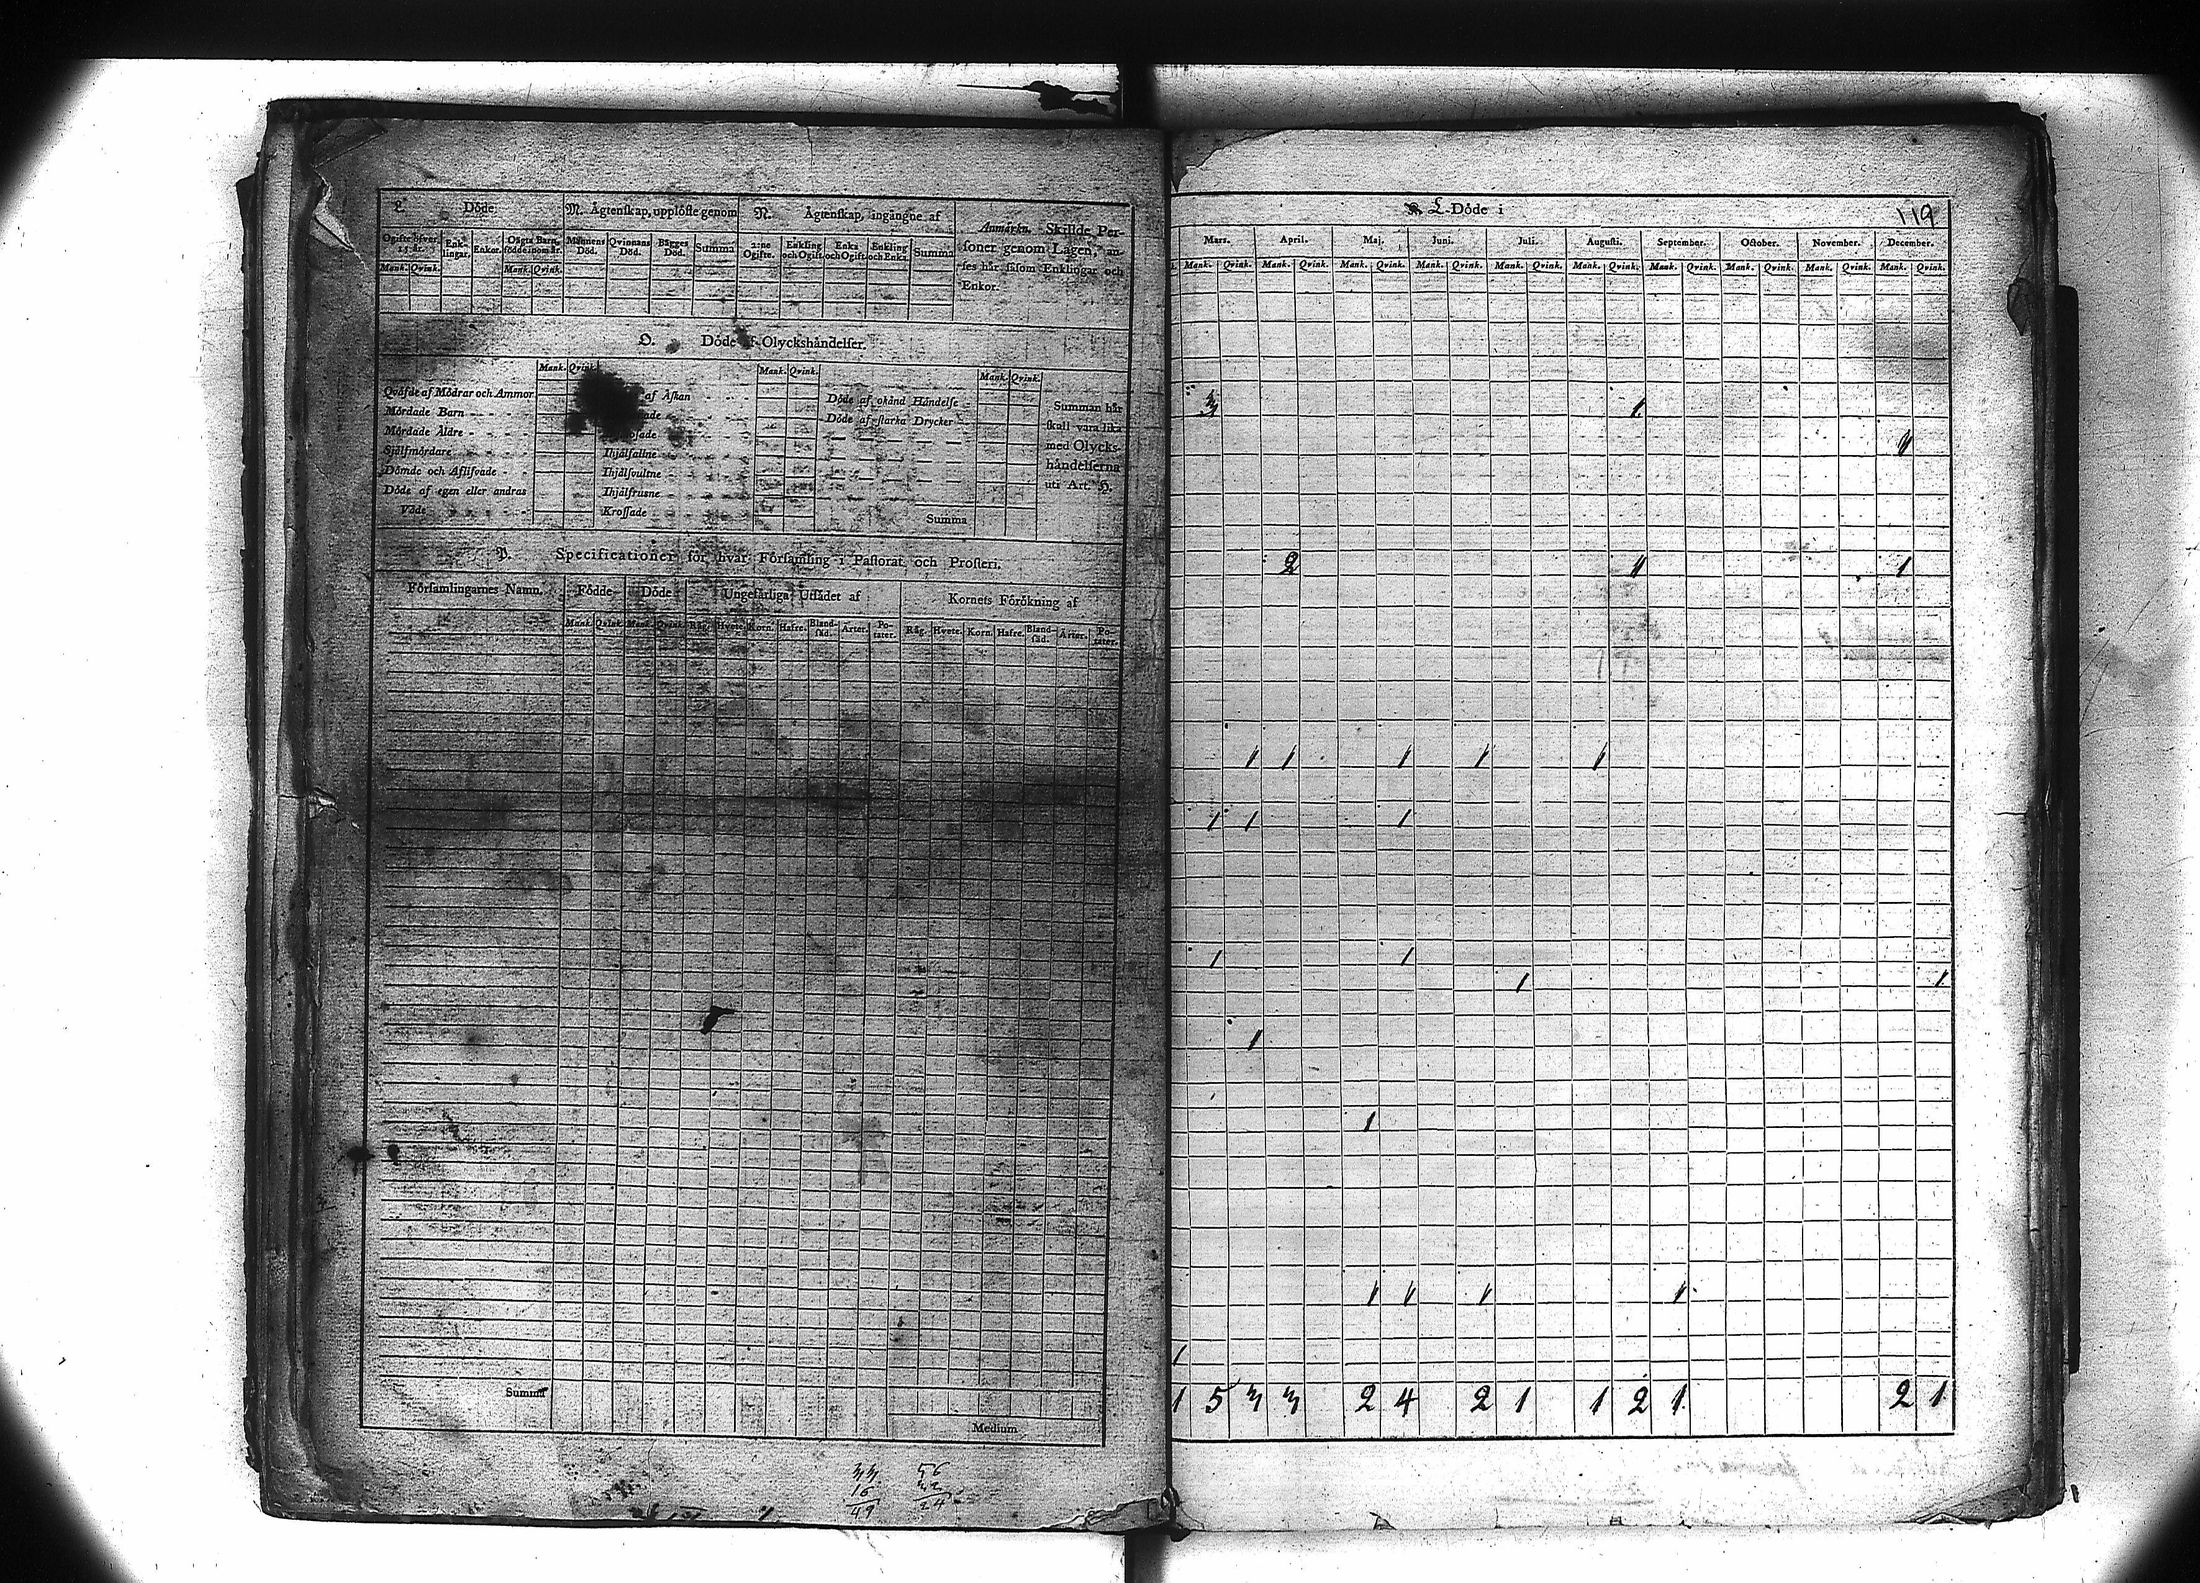 L. Döde
M. Ägtenskap, upplöste genom
N. Ägtenskap, ingångne af
Ogifte öfver 15 år.
Enklingar.
Enkor.
Oägta Barn, födde inom år.
Männens Död.
Qvinnans Död.
Bägges Död.
Summa
2:ne Ogifte.
Enkling och Ogift
Enka och Ogift
Enkling och Enka
Summa
Mank. Qvink. Mank. Qvink.
Anmärkn. Skillde Per-
soner genom Lagen, an-
ses här såsom Enklingar och
Enkor.
O. Döde af Olyckshändelser.
Mank. Qvink. Mank. Qvink. Mank. Qvink.
Qväfde af Mödrar och Ammor
Mördade Barn
Mördade Äldre
Självmördare
Dömde och Aflifvade
Döde af egen eller andras
Våde
af Åskan
Ihjälfallne
Ihjälsvultne
Ihjälfrusne
Krossade
Döde af okänd Händelse
Döde af starka Drycker
Summa
Summan här
skall vara lika
med Olycks-
händelserna
uti Art. H.
P. Specificationer för hvar Församling i Pastorat och Prosteri.
Församlingarnes Namn. Födde Döde Ungefärliga Utsädet af Kornets Förökning af
Mank. Qvink. Mank. Qvink. Råg. Hvete. Korn. Hafre. Bland-säd. Ärter. Po-tater. Råg. Hvete. Korn. Hafre. Bland-säd. Ärter. Po-tater.
Summa
Medium
16 32
49 24
L. Döde i
119
Mars. April. Maj. Juni. Juli. Augusti. September. October. November. December.
Mank. Qvink. Mank. Qvink. Mank. Qvink. Mank. Qvink. Mank. Qvink. Mank. Qvink. Mank. Qvink. Mank. Qvink. Mank. Qvink. Mank. Qvink.
3 1
1
2 1 1
1 1 1 1 1
1 1 1
1 1
1 1
1
1
1 1 1 1
1
1 5 3 3 2 4 2 1 1 2 1 2 1